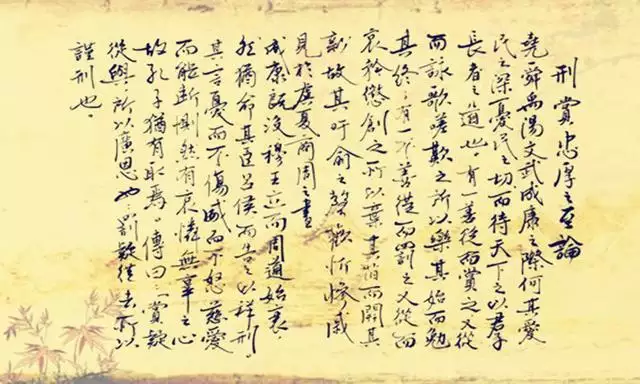 刑賞忠厚之至論
堯舜禹湯文武成康之際何其愛
民之深憂民之切而待天下之以君子
長者之道也。有一善從而賞之又從
而詠歌嗟歎之所以樂其始而勉
其終有一不善從而罰之又從而
哀矜懲創之所以棄其舊而開其
新故其吁俞之聲歡忻慘戚
見於虞夏商周之書
成康既沒穆王立而周道始衰
然猶命其臣呂侯而告之以祥刑。
其言憂而不傷威而不怒慈愛
而能斷惻然有哀憐無辜之心
故孔子猶有取焉。傳曰：「賞疑
從與所以廣恩也罰疑從去所以
謹刑也。